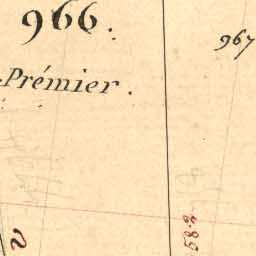 966.
967
Prémier.
583
v